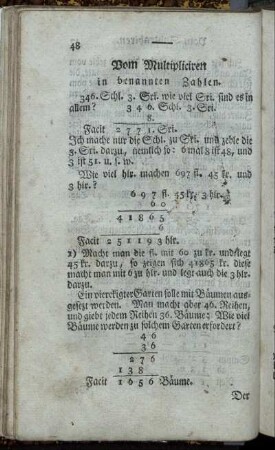 48
Vom Multipliciren
in benannten Zahlen.
346. Schl. 3. Sri. wie viel Sri. sind es in
allem? 3 4 6. Schl. 3. Sri.
8.
Facit 2 7 7 1. Sri.
Ich mache nur die Schl. zu Sri. und zehle die
3. Sri. darzu, nemlich so: 6 mal 8 ist 48, und
3 ist 51. u. s. w.
Wie viel hlr. machen 697 fl. 45 kr. und
3 hlr.?
6 9 7 fl. 45 kr. 3 hlr.
6 0
4 1 8 6 5
6
Facit 2 5 1 1 9 3 hlr.
2) Macht man die fl. mit 60 zu kr. und legt
45 kr. darzu, so zeigen sich 41865 kr. diese
macht man mit 6 zu hlr. und legt auch die 3 hlr.
darzu.
Ein viereckigter Garten solle mit Bäumen aus-
gesezt werden. Man macht aber 46. Reihen,
und giebt jedem Reihen 36. Bäume: Wie viel
Bäume werden zu solchem Garten erfordert?
4 6
3 6
2 7 6
1 3 8
Facit 1 6 5 6 Bäume.
Der